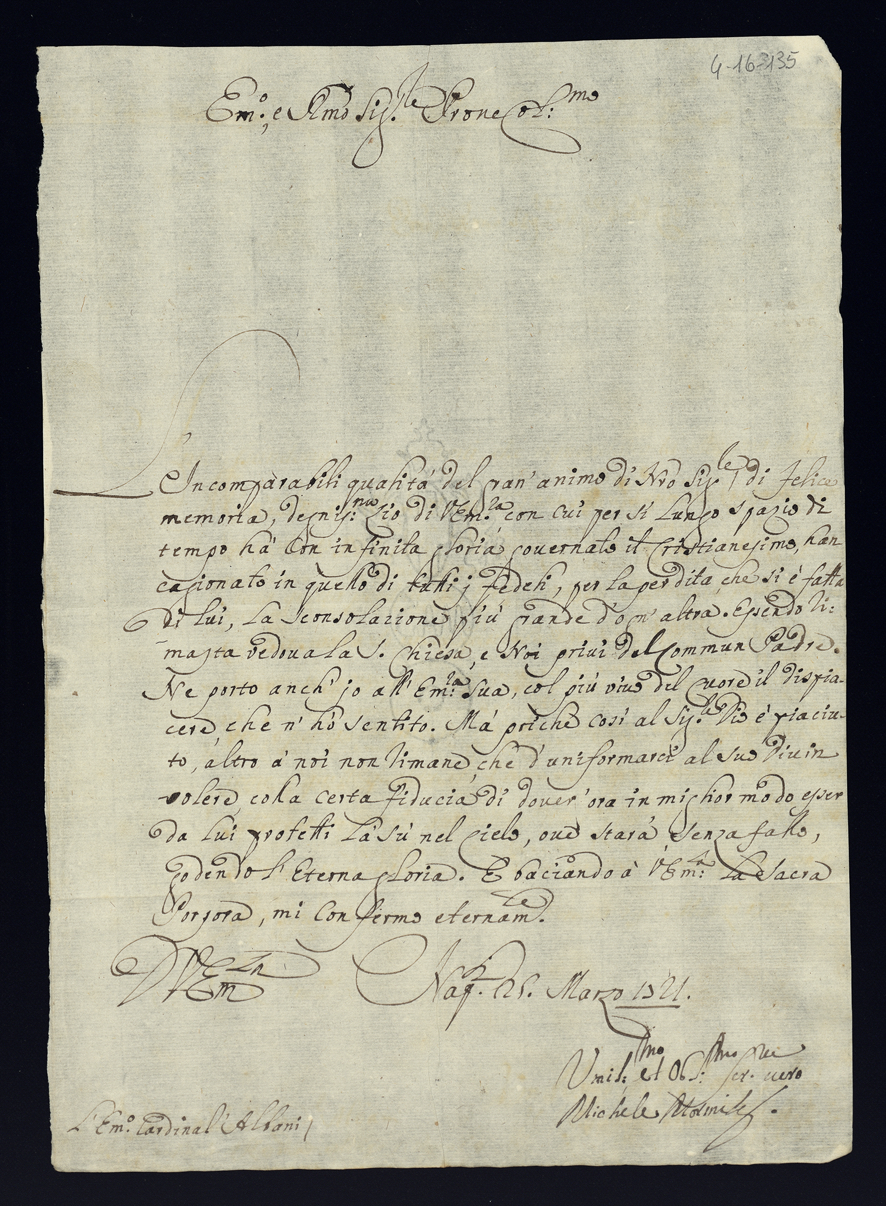 4-16-135
Em.o, e Rmo Sig.re Prone Col:mo
L'Incomparabili qualità del gran' animo di Nro Sig.re di felice
memoria, degnis:mo Zio di V Em:za con cui per sì lungo spazio di
tempo hà con infinita gloria governato il Cristianesimo, han
cagionato in quello di tutti j fedeli, per la perdita, che si è fatta
di lui, la sconsolazione più grande d'ogn'altra. Essendo ri:
masta vedova la S. Chiesa, e Noi privi del Commun Padre.
Ne porto anch' jo all' Em:za Sua, col più vivo del cuore il dispia-
cere che n' hò sentito. Mà poiche così al Sig.re Dio è piaciu-
to, altro à noi non rimane che d'uniformarci al suo Divin
volere, colla certa fiducia di dover' ora in miglior modo esser
da lui protetti là sù nel Cielo, ove starà senza fallo,
godendo l' Eterna gloria. E baciando à V Em:za la Sacra
Porpora, mi confermo eternam.te
D V Em.za Nap.li 25. Marzo 1721.
Umil:mo et Obl:mo ser.re vero
Michele
L'Em.o Cardinal' Albani